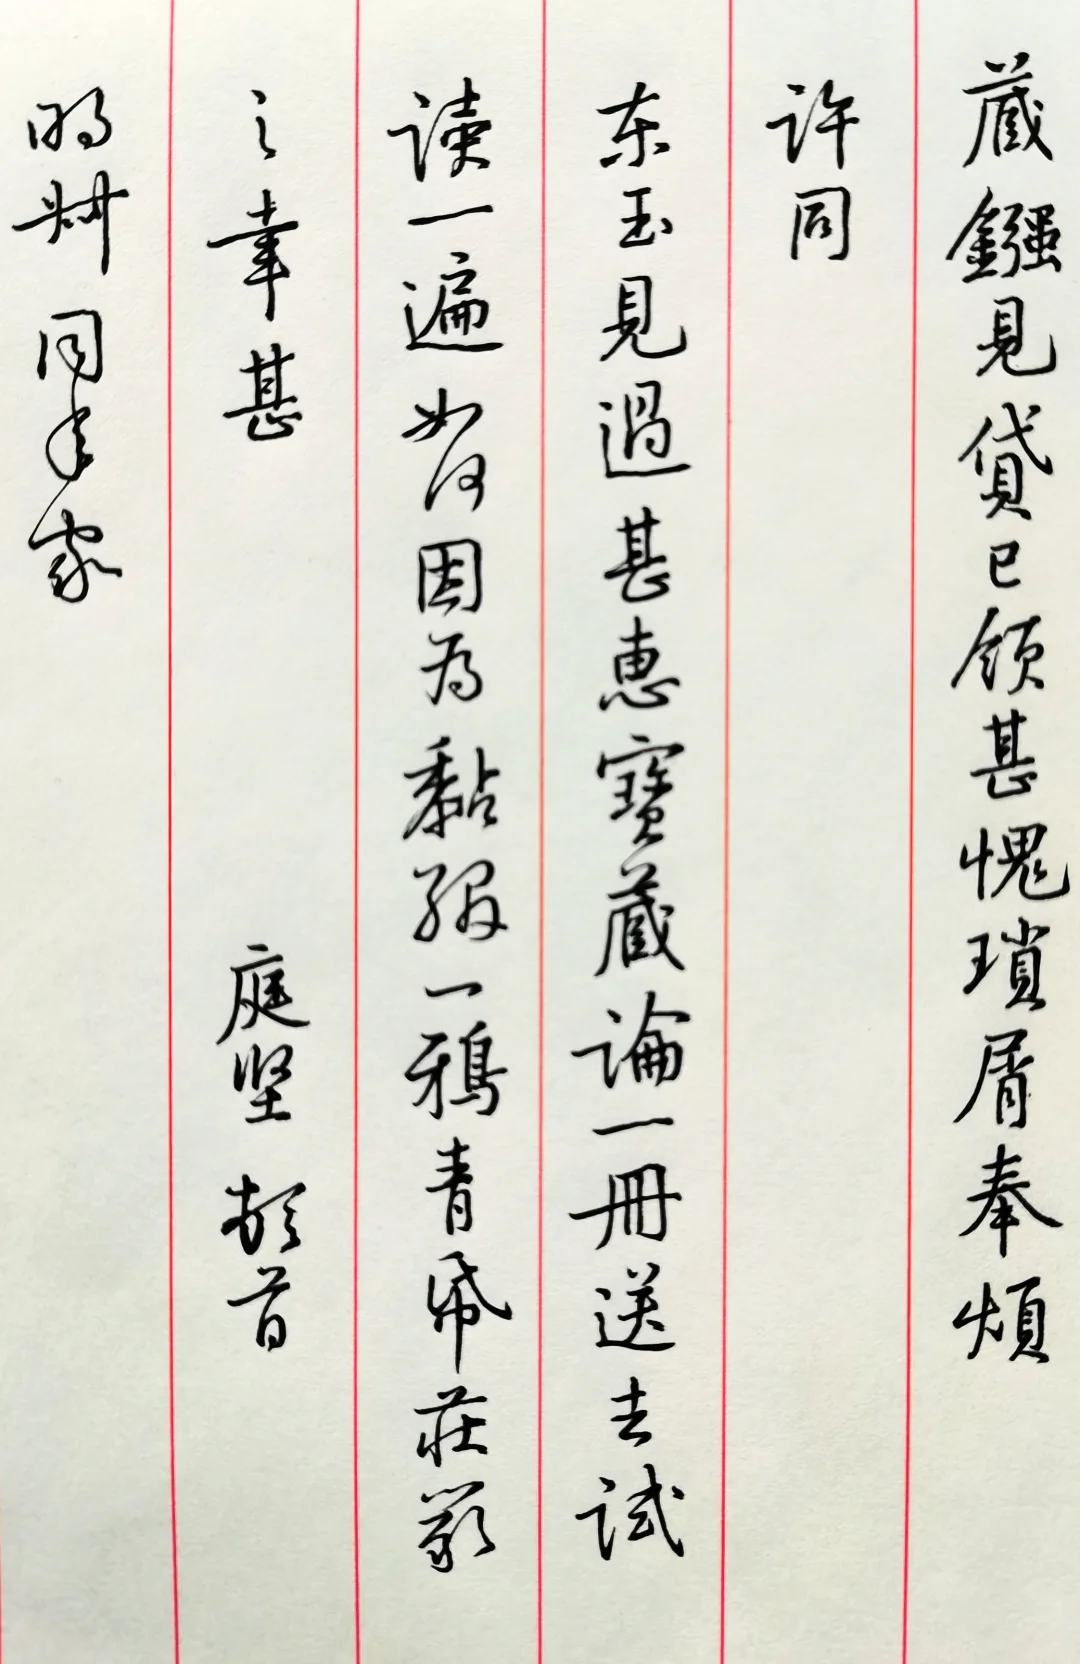 藏鏹見貸已領甚愧瑣屑奉煩
許同
东玉見過甚惠寶藏論一冊送去試
读一遍如何因为黏綴一鴉青帋莊嚴
之幸甚 庭坚 頓首
明叔同年家